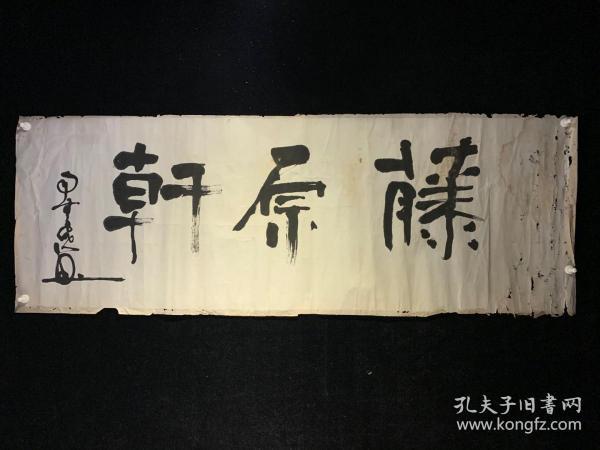 藤原軒
孔夫子旧書网
www.kongfz.com